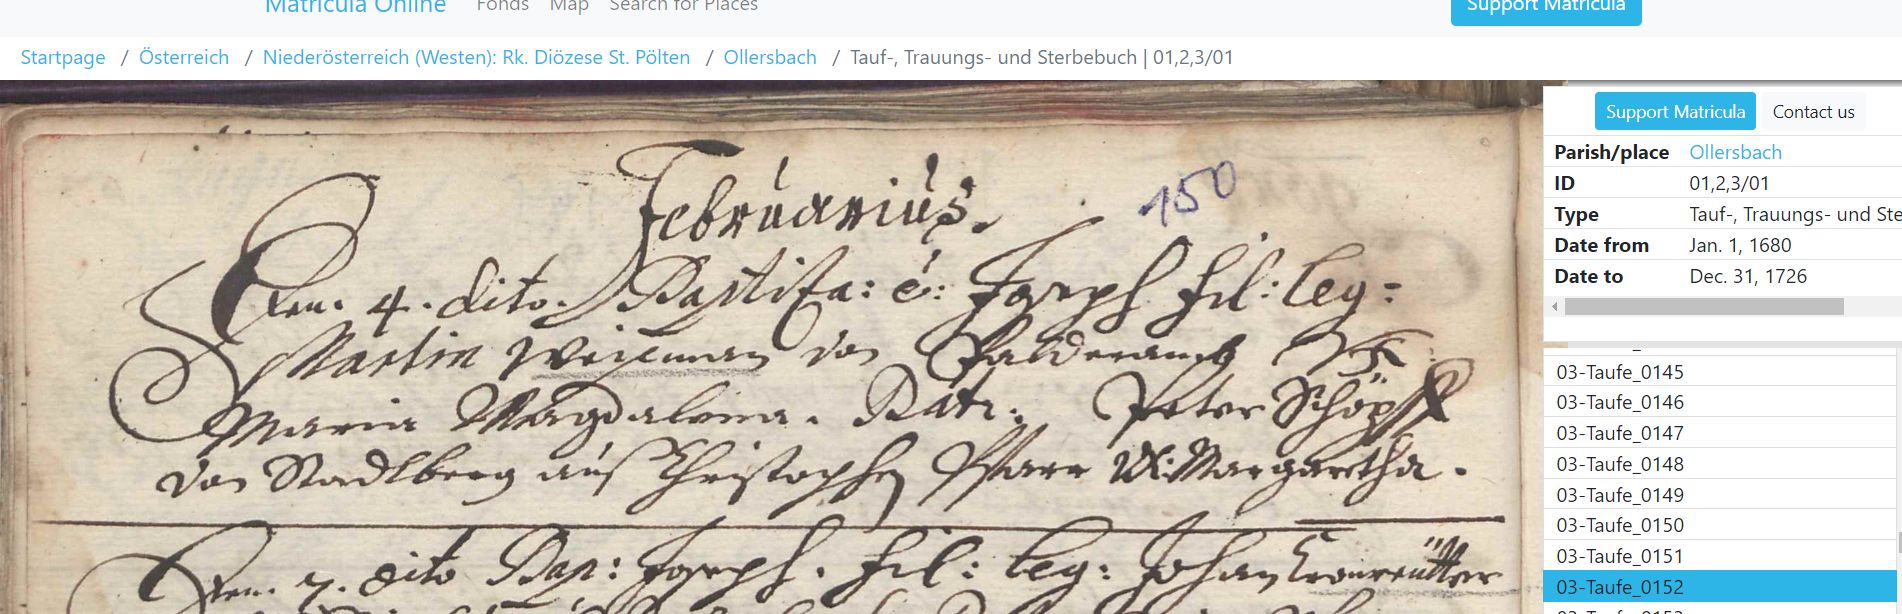 Matricula Online Fonds Map Search for Places Support Matricula
Startpage / Österreich / Niederösterreich (Westen): Rk. Diözese St. Pölten / Ollersbach / Tauf-, Trauungs- und Sterbebuch | 01,2,3/01
Februarius.
150
Den. 4. dito. Baptiza: é: Joseph fil: leg:
Martin von
Maria Magdalena. Pat: Peter Schöpff
von Stadlberg auß Christophen Pfarr Ux: Margaretha.
Den. 7. dito Bap: Joseph. fil: leg: Johan
Support Matricula Contact us
Parish/place Ollersbach
ID 01,2,3/01
Type Tauf-, Trauungs- und Ste
Date from Jan. 1, 1680
Date to Dec. 31, 1726
03-Taufe_0145
03-Taufe_0146
03-Taufe_0147
03-Taufe_0148
03-Taufe_0149
03-Taufe_0150
03-Taufe_0151
03-Taufe_0152